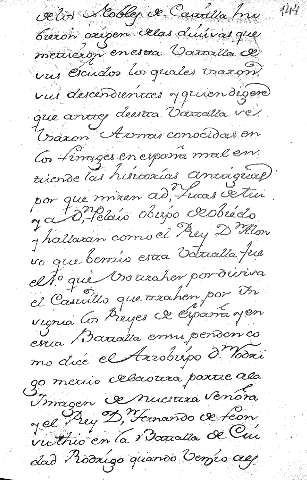 147
de los Nobles de Castilla hu
bieron origen de las divisas que
metieron en esta Vatalla de
sus escudos los quales traxon
sus descendientes y quien digere
que antes de esta Vatalla se
traxon Armas conocidas en
los Linages en españa mal en
tiende las historias antiguas
por que miren a D.n Lucas de tui
y a D.n Pelaio obispo de obiedo
y hallaran como el Rey D.n Alon
so que bencio esta Vatalla fue
el 1.o que Uso traher por divisa
el Castillo que trahen por In
signia los Reyes de España y en
esta Batalla en su pendon co
mo dice el Arzobispo D.n Rodri
go metio de la otra parte a la
Imagen de nuestra Señora
y el Rey D.n Fernando de Leon
su thio en la Batalla de Ciu
dad Rodrigo quando Vencio a es